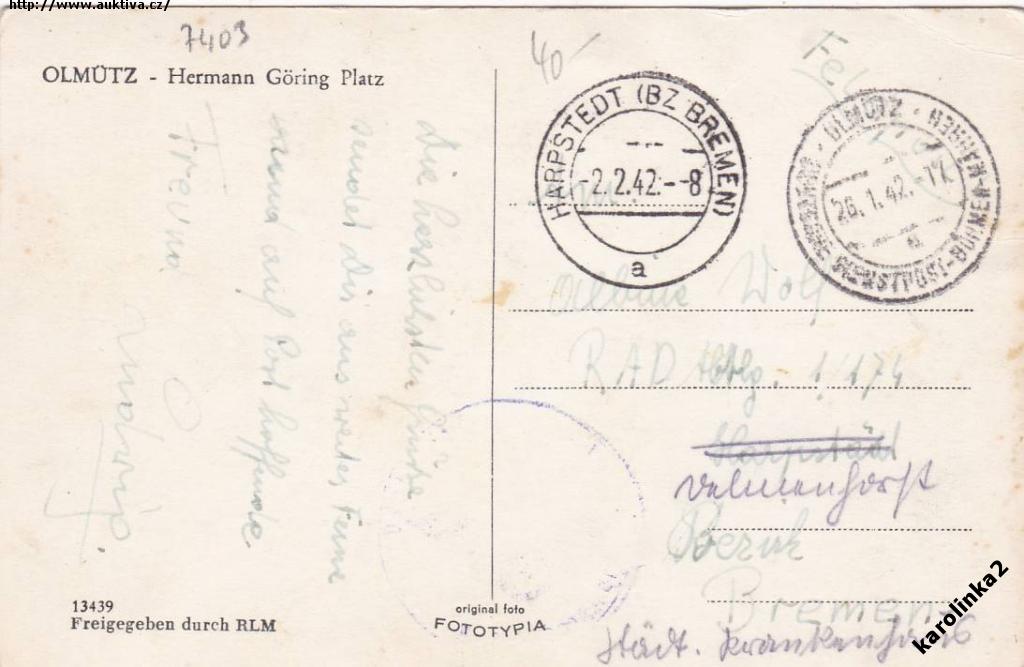 http://www.auktiva.cz/
7403
OLMÜTZ - Hermann Göring Platz
Die herzlichsten Grüsse
sendet Dir aus weiter Ferne
auf Post hoffende
Freund
Ludwig.
40-
HARPSTEDT (BZ BREMEN)
-2.2.42.--8
a
OLMÜTZ
DEUTSCHE DIENSTPOST-BÖHMEN-MÄHREN
26.1.42.-17
a
Wolf
RAD Abtlg. 1/174
Harpstädt
Delmenhorst
Bezirk
Bremen
Städt. Krankenhaus
13439
Freigegeben durch RLM
original foto
FOTOTYPIA
karolinka2